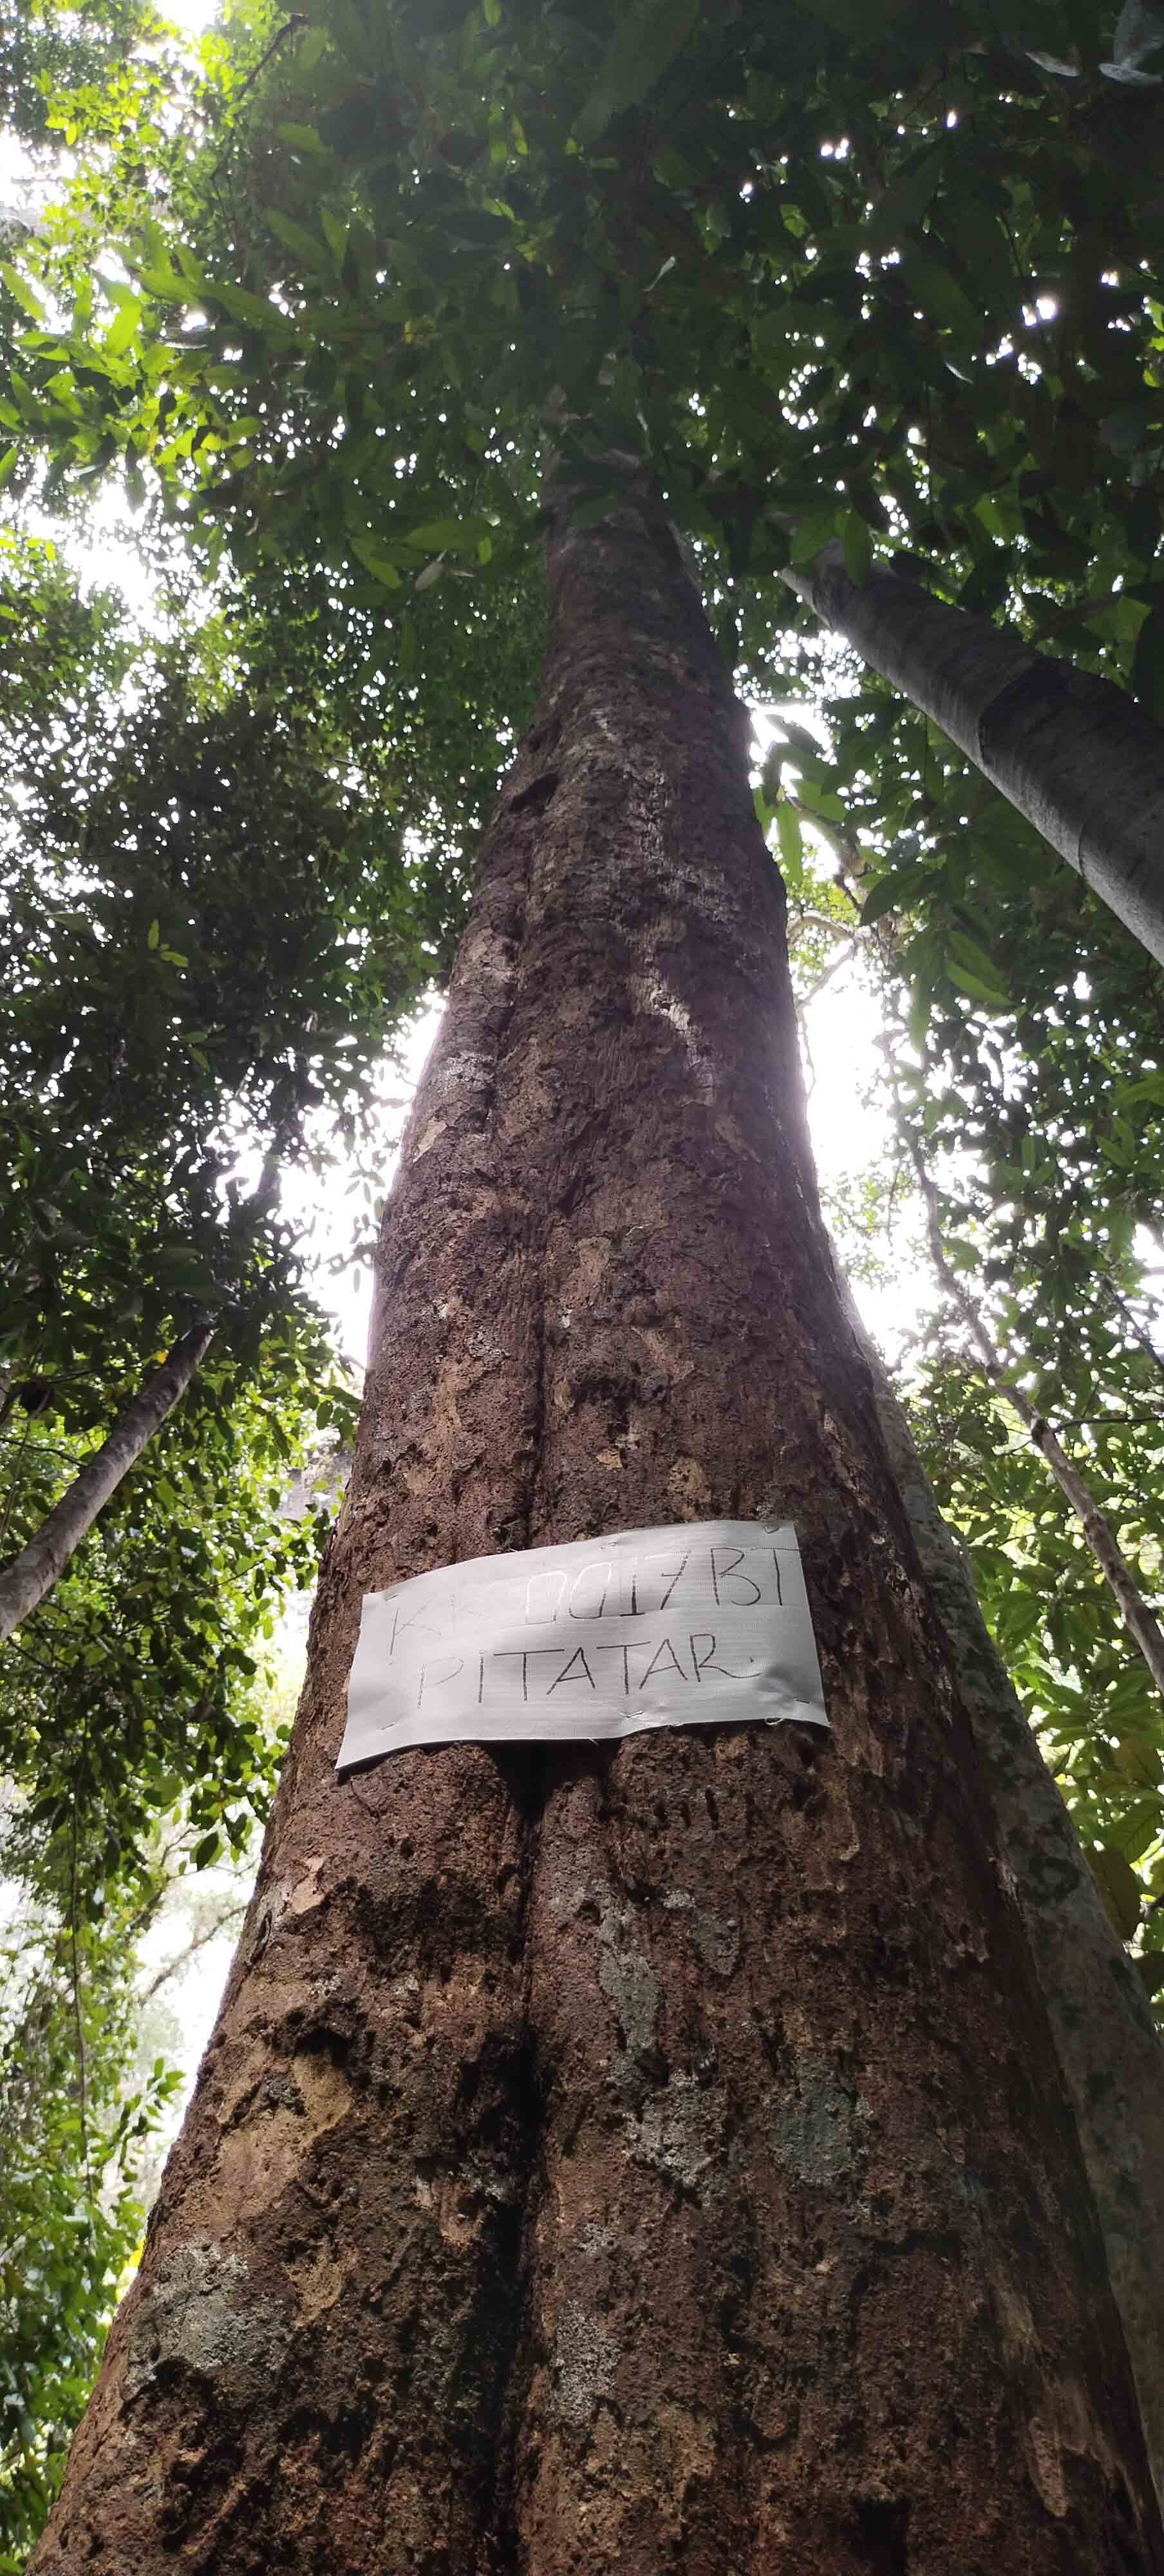 KK 0017BT
PITATAR.